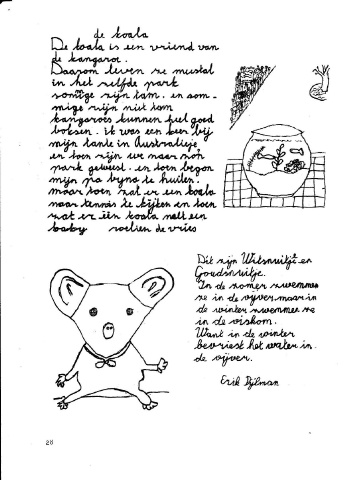 de koala
De koala is een vriend van
de kangaroe.
Daarom leven ze meestal
in het zelfde park
somige zijn tam. en som-
mige zijn niet tam
kangaroes kunnen heel goed
boksen. ik was een keer bij
mijn tante in Australieje
en toen zijn we naar zo'n
park geweest. en toen begon
mijn pa byna te huilen.
maar toen zat er een koala
naar tennis te kijken en toen
zat er één koala met een
baby roelien de vries
Dit zijn Witsnuitje en
Goudsnuitje.
In de zomer zwemmen
ze in de vyver maar in
de winter zwemmen ze
in de viskom.
Want in de winter
bevriest het water in
de vijver.
Erik Dijlman
28